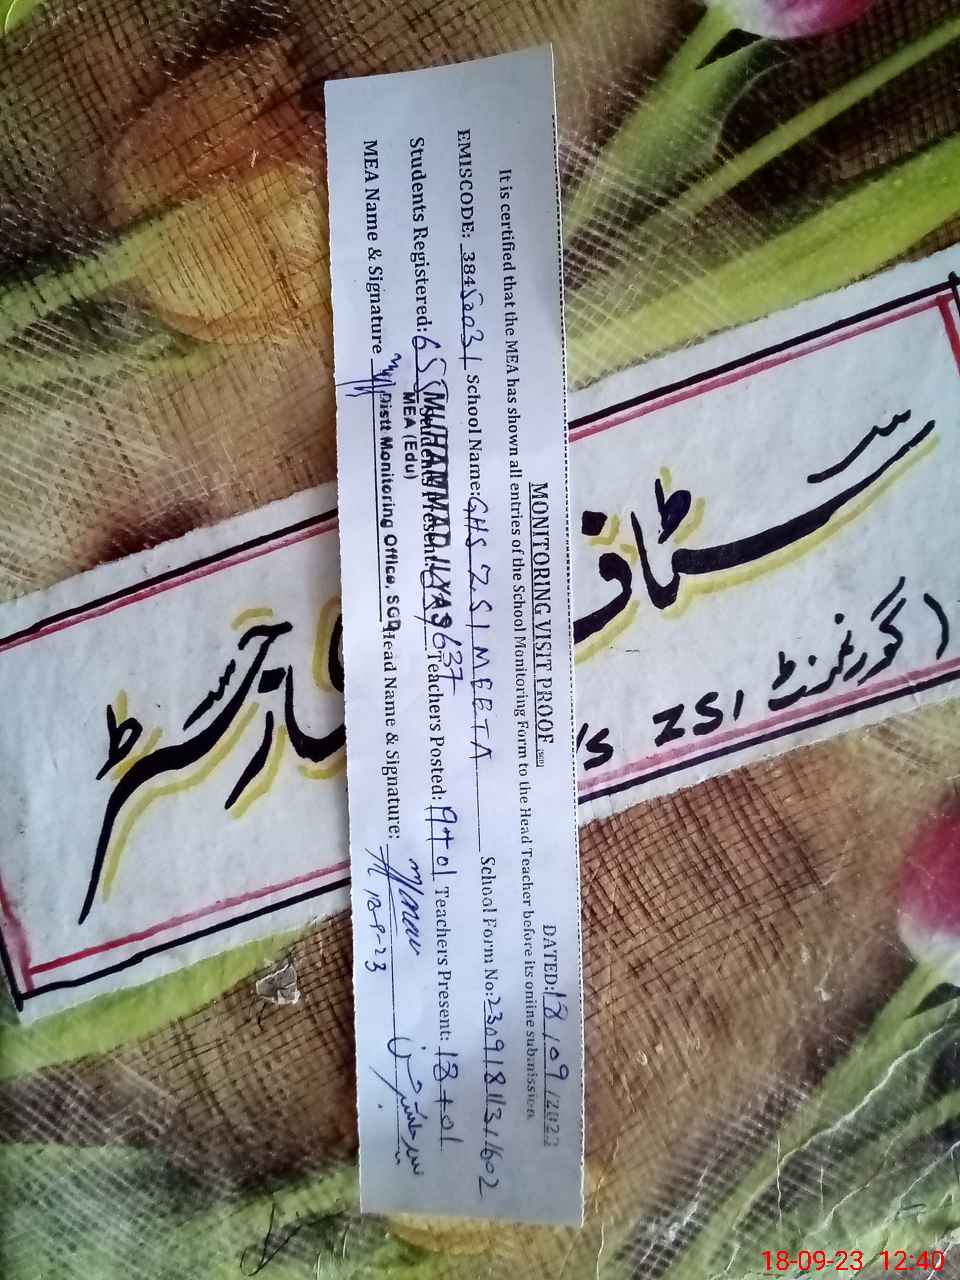 MONITORING VISIT PROOF
DATED: 18/09/2023
It is certified that the MEA has shown all entries of the School Monitoring Form to the Head Teacher before its online submission
EMISCODE: 38450031 School Name: GHS Z.S I MEETA School Form No: 23091811311602
Students Registered: Students Present: 637 Teachers Posted: 19+01 Teachers Present: 18+01
MUHAMMAD ILYAS
MEA (Edu)
Distt Monitoring Office, SGD
MEA Name & Signature Head Name & Signature:
18-9-23
سٹاف
رجسٹر
گورنمنٹ ZSI
18-09-23 12:40